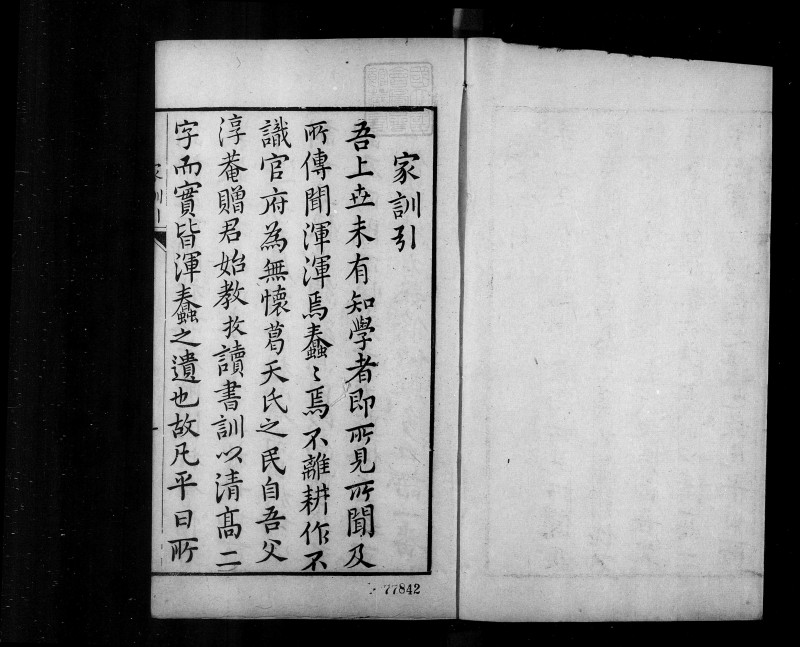 家訓引
吾上丗未有知學者即所見所聞及
所傳聞渾渾焉蠢〻焉不離耕作不
識官府為無懷葛天氏之民自吾父
淳菴贈君始教孜讀書訓以清髙二
字而實皆渾蠢之遺也故凢平日所
家訓引
77842